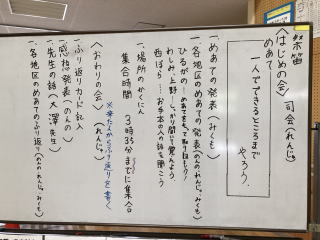 祭笛
〈はじめの会〉司会(れんじゅ)
めあて
一人でできるところまで
やろう.
一、めあての発表(みくも)
一、各地区のめあての発表(ののれんじゅ、みくも)
ひるがの…めあてをもって取り組もう!
わしみ、上野…しっかり聞いて覚えよう
西ぼら…お手本の人の話を聞こう
一、場所のかくにん
集合時間 3時35分までに集合
〈おわりの会〉(れんじゅ) ※来た人からふり返りを書く
一、ふり返りカード記入
一、感想発表(ののん)
一、先生の話(大澤先生)
一、各地区のめあてのふり返り(ののれんじゅみくも)